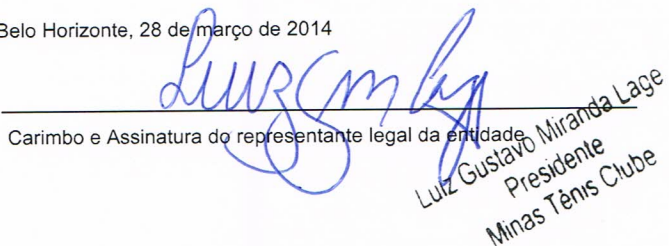 Belo Horizonte, 28 de março de 2014
Carimbo e Assinatura do representante legal da entidade
Luiz Gustavo Miranda Lage
Presidente
Minas Tênis Clube